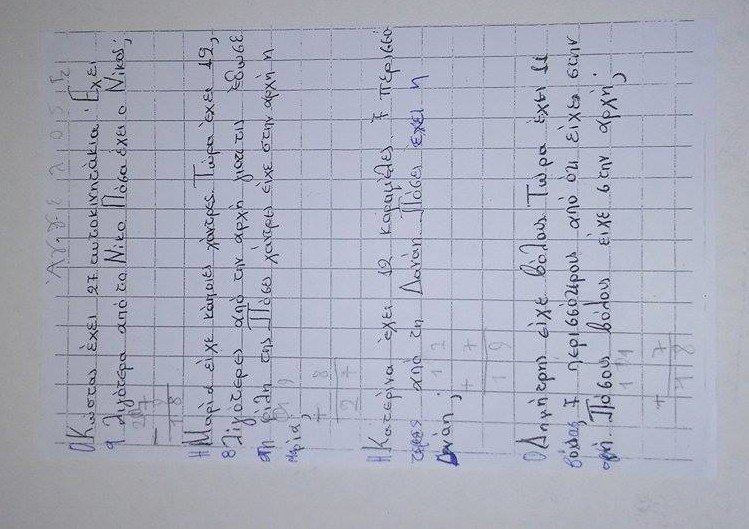 Ο Κώστας έχει 27 αυτοκινητάκια. Έχει
9 λιγότερα από το Νίκο. Πόσα έχει ο Νίκος;
27
9
18
Η Μαρία είχε κάποιες χάντρες. Τώρα έχει 19,
8 λιγότερες από την αρχή γιατί τις έδωσε
στη φίλη της. Πόσες χάντρες είχε στην αρχή η
Μαρία;
19
+ 8
27
Η Κατερίνα έχει 12 καραμέλες, 7 περισσό
τερες από τη Δανάη. Πόσες έχει η
Δανάη;
12
+ 7
19
Ο Δημήτρης είχε βόλους. Τώρα έχει 11
βόλους 7 περισσότερους από ότι είχε στην
αρχή. Πόσους βόλους είχε στην αρχή;
11
+ 7
18